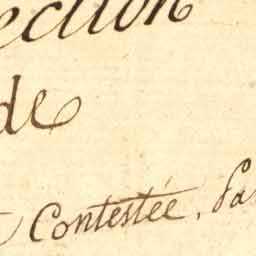 ection
de
Contestée, Pa